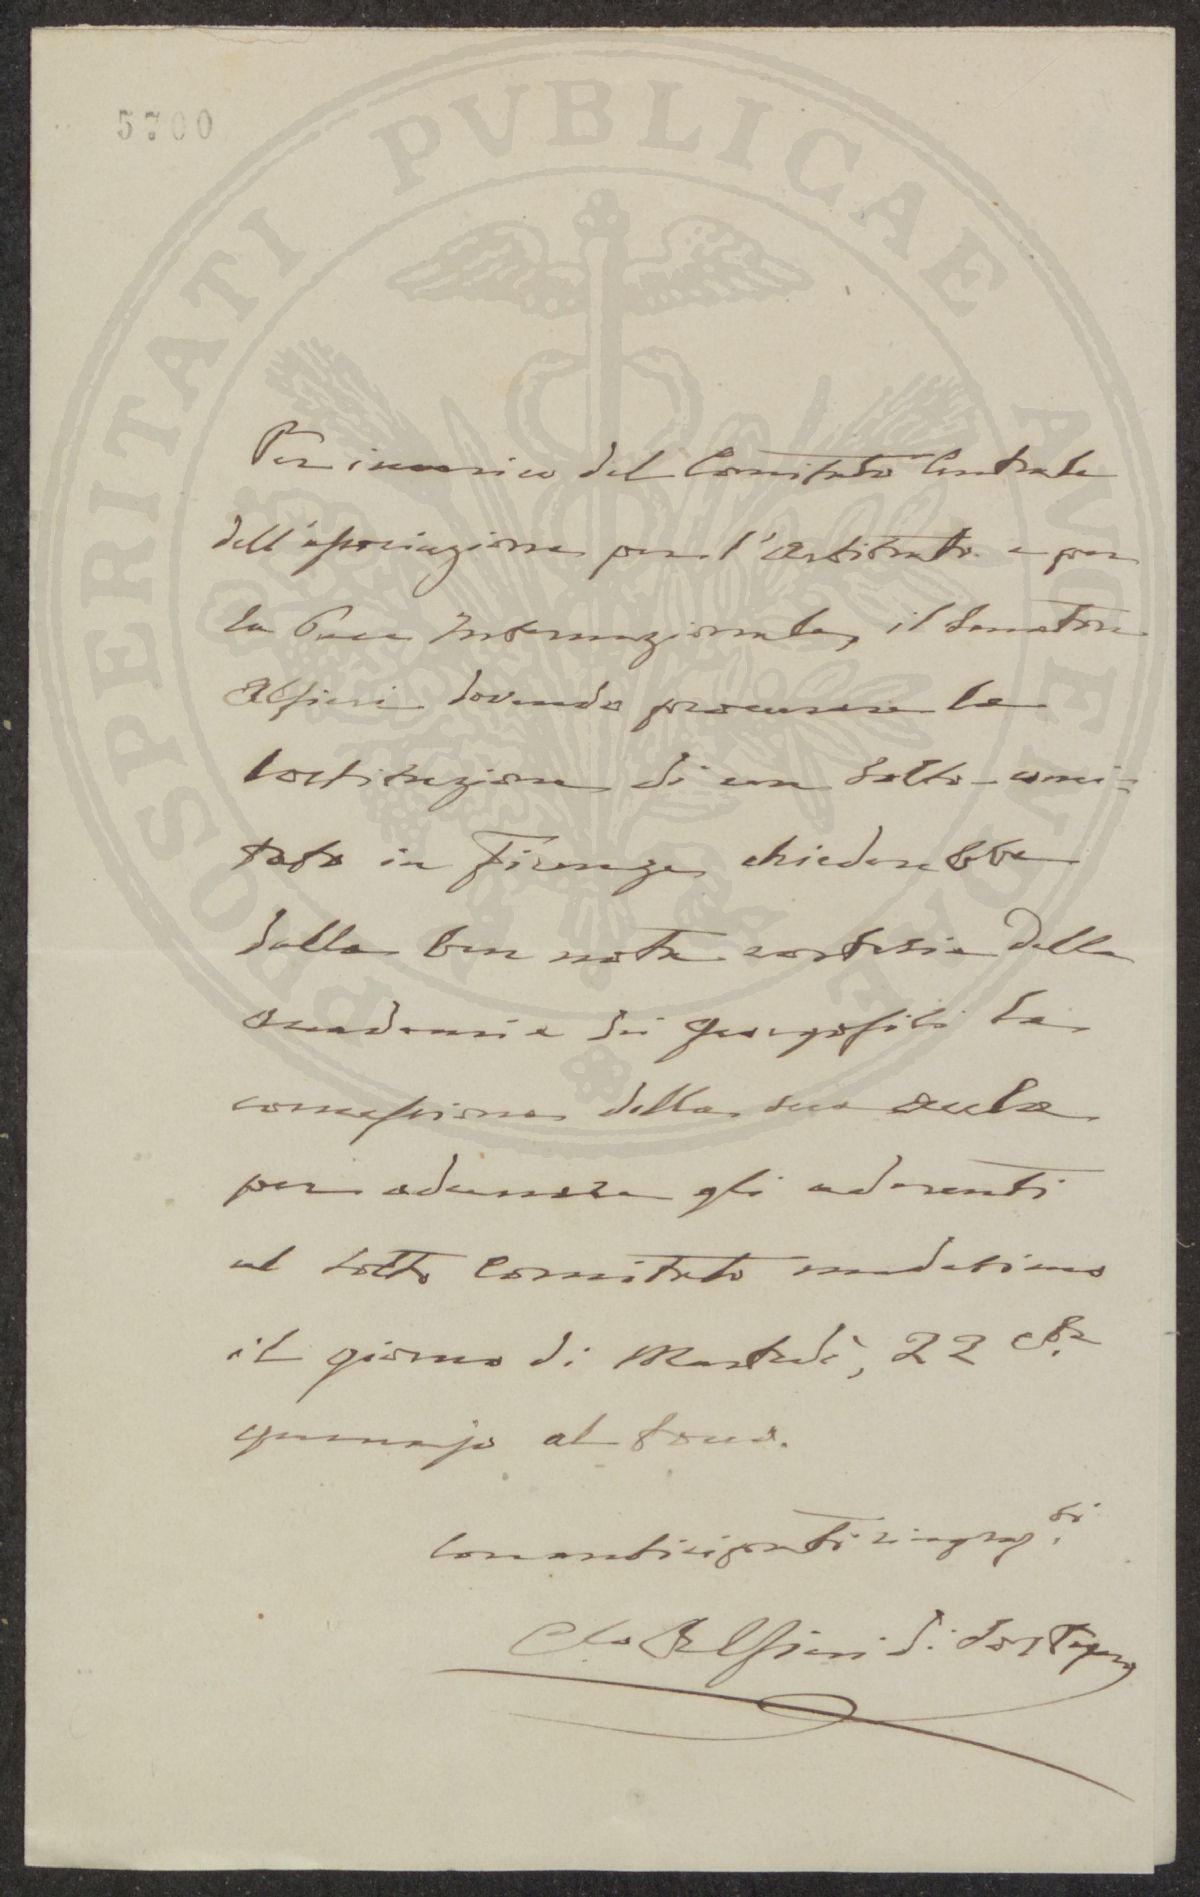 5700
PROSPERITATI PVBLICAE AVGENDAE
Per incarico del Comitato Centrale
dell'associazione per l'Arbitrato e per
la Pace Internazionale, il Senatore
Alfieri dovendo procurare la
Costituzione di un Sotto-comi-
tato in Firenze, chiederebbe
dalla ben nota cortesia della
Accademia dei Georgofili la
concessione della sua aula
per adunare gli aderenti
al Sotto Comitato medesimo
il giorno di Martedì, 22 c.te
gennajo al tocco.
Con anticipati ringraz.ti
C.lo Alfieri di Sostegno